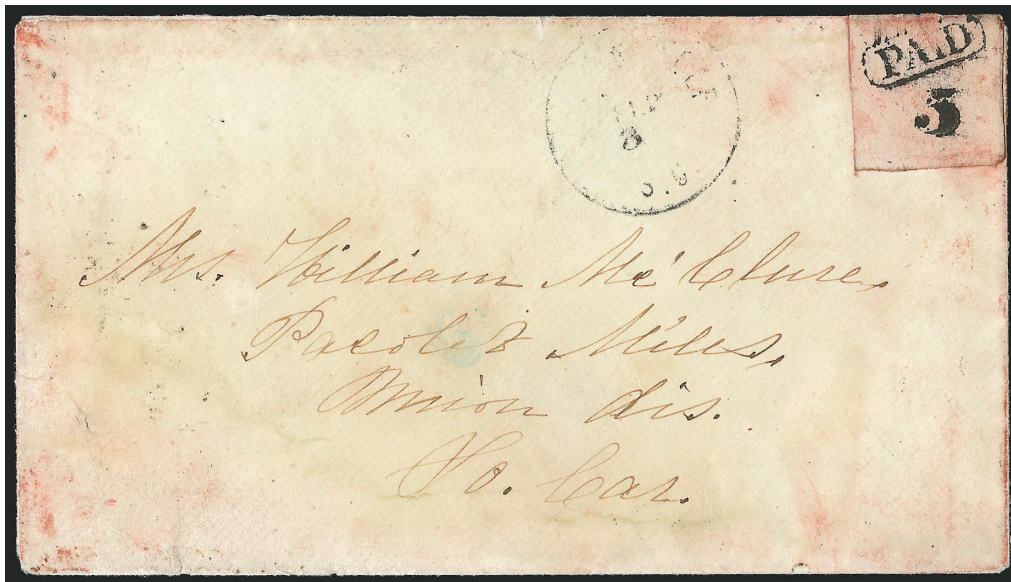 PAID
5
SEP
3
S.C.
Mrs. William Mc Clure,
Pacolet Mills,
Union dis.
So. Car.